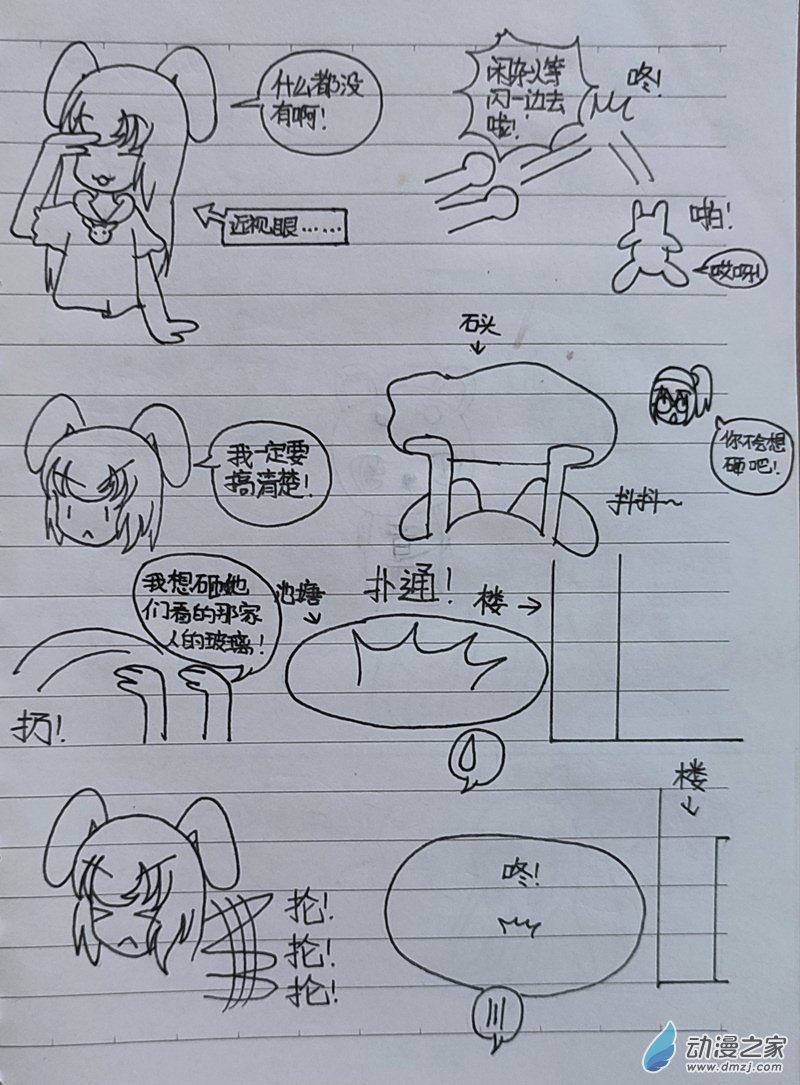 什么都没
有啊！
近视眼……
闲杂人等
闪一边去
啦！
咚！
啪！
哎呀！
石头
↓
我一定要
搞清楚！
你不会想
砸吧！
抖抖~
我想砸她
们看的那家
人的玻璃！
池塘
↓
扑通！
楼→
扔！
楼
↓
抡！
抡！
抡！
咚！
动漫之家
www.dmzj.com